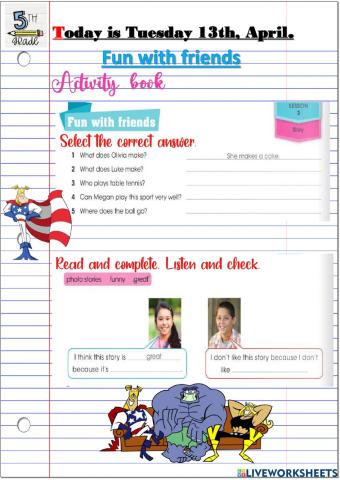 5TH
Grade
Today is Tuesday 13th, April.
Fun with friends
Activity book
Fun with friends
LESSON
3
Story
Select the correct answer.
1 What does Olivia make? She makes a cake.
2 What does Luke make?
3 Who plays table tennis?
4 Can Megan play this sport very well?
5 Where does the ball go?
Read and complete. Listen and check.
photo stories funny great
I think this story is great
because it's
I don't like this story because I don't
like
LIVEWORKSHEETS